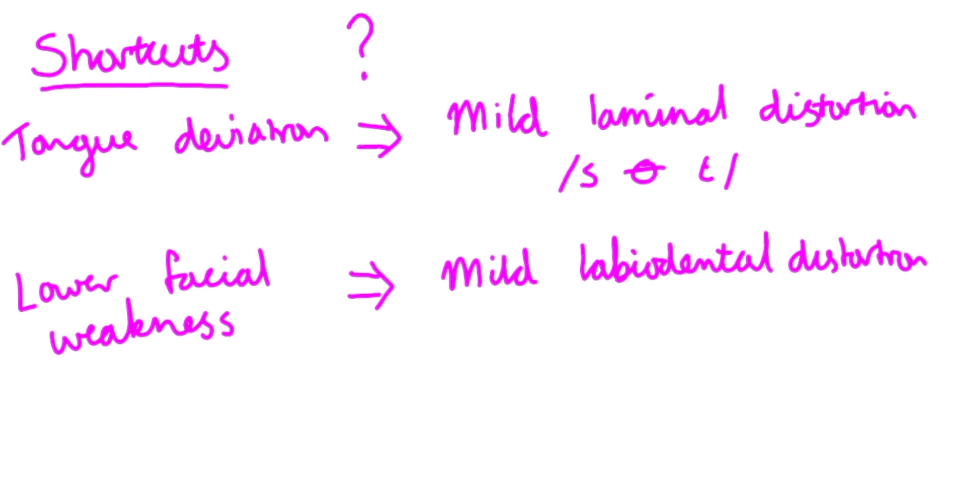 Shortcuts ?
Tongue deviation ⇒ Mild laminal distortion
/s θ t/
Lower facial ⇒ Mild labiodental distortion
weakness